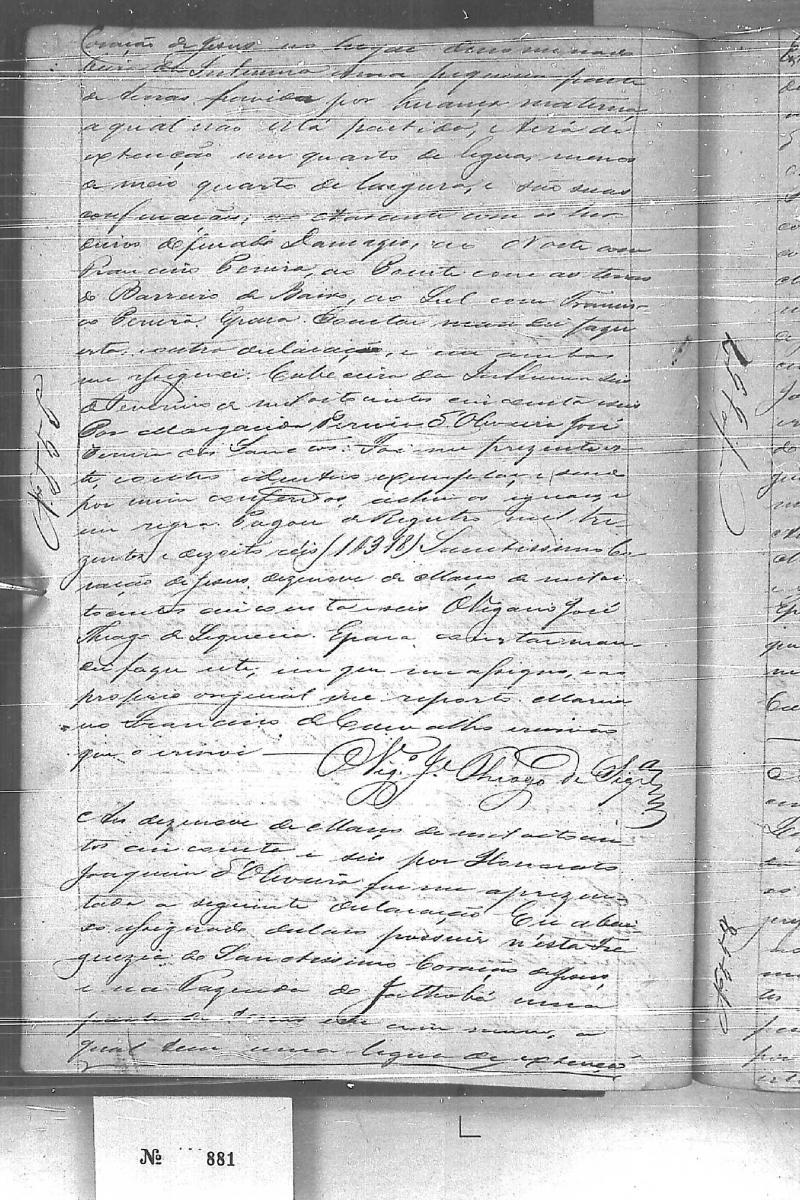 Coração de Jesus no lugar denominado
da Inhuma uma pequena parte
de terras, havida por herança materna,
a qual não está partida, e terá de
extenção um quarto de legua, menos
e meio quarto de largura, e são suas
confinações; ao Nascente com os her-
deiros do finado Damazio, ao Norte com
Francisco Pereira, ao Poente com as terras
do Barreiro de Baixo, ao Sul com Francis-
co Pereira. Epara constar mandei faser
esta, e outra declaração, e em ambas
me assignei. Cabeceira da Inhuma seis
de Fevereiro de mil oitocentos cincoenta e seis
Por Margarida Pereira d'Oliveira José
Pereira dos Sanctos. Foi me prezente es-
te, e outro identico exemplar, e sendo
por mim conferidos, achei os iguaes, e
em regra. Pagou de Registro mil tre-
zentos e dezoito réis (1$318) Sanctissimo Co-
ração de Jesus dezenove de Março de mil oi-
tocentos cincoenta e seis O Vigario José
Thiago de Siqueira. Epara constar man-
dei faser este, em que me assigno, e ao
proprio original me reporto. Maria-
no Francisco de Carvalho escrivão
que o escrevi
O Vig.º J.e Thiago de Siqr.a
Aos dezenove de Março de mil oitocen-
tos cincoenta e seis por Honorato
Joaquim d'Oliveira foi me aprezen-
tada a seguinte declaração Eu abai-
xo assignado declaro possuir n'esta Fre-
guezia do Sanctissimo Coração de Jesus,
e na Fazenda do Jathobá uma
parte de terras em commum, a
qual tem uma legua de extenção
Nº 556
Nº 557
Nº 558
№ 881